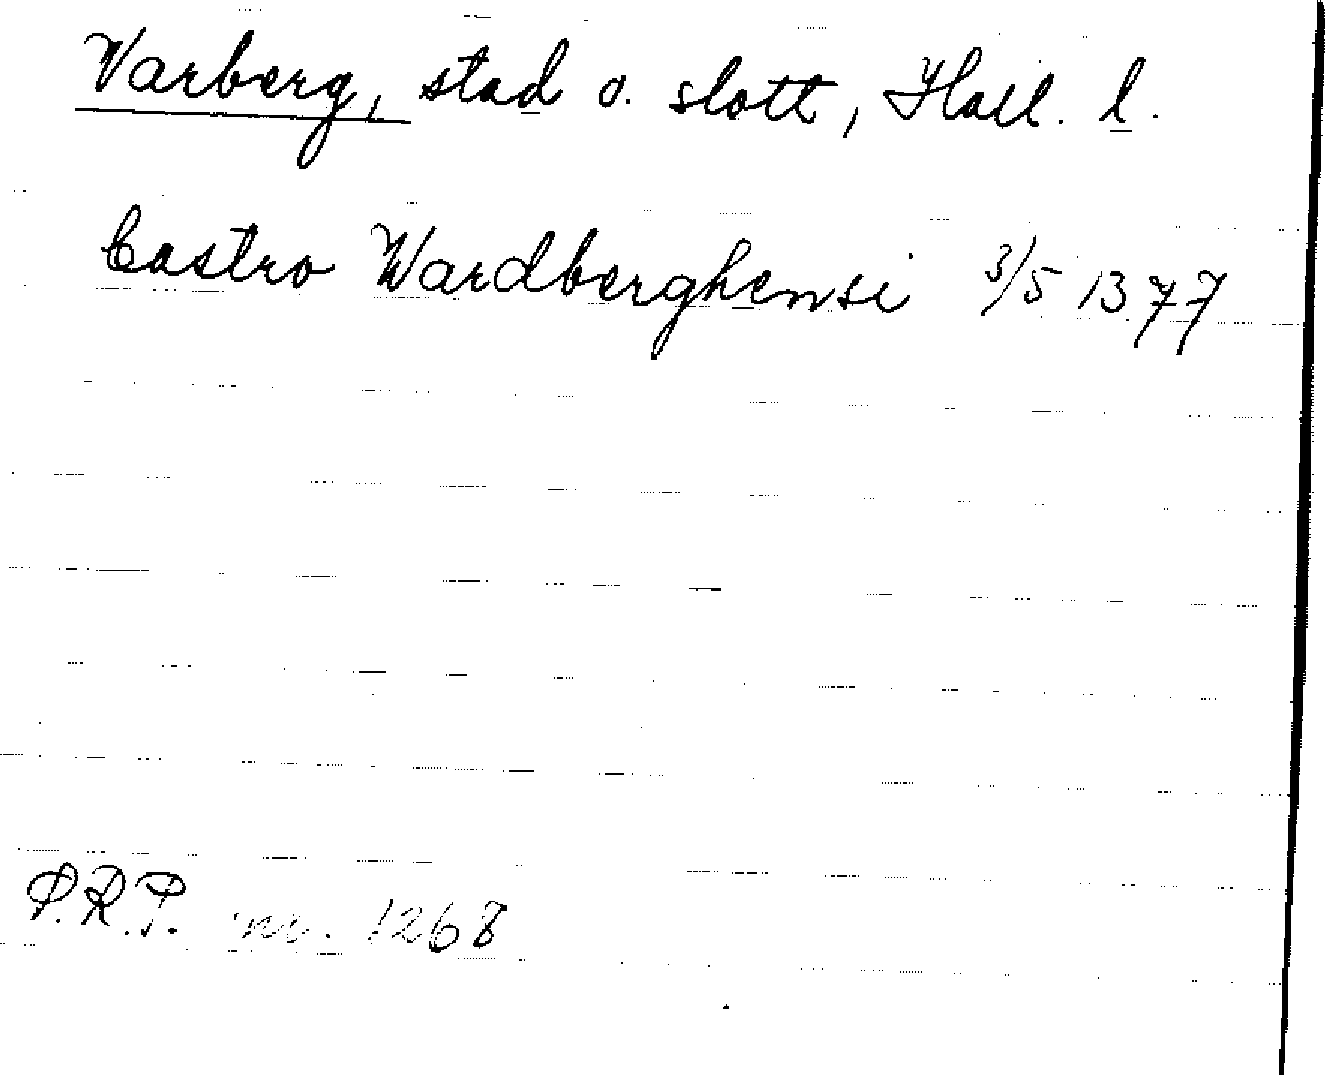 Varberg, stad o. slott, Hall. l.
Castro Wardberghensi 3/5 1377
P.R.P. nr. 1268